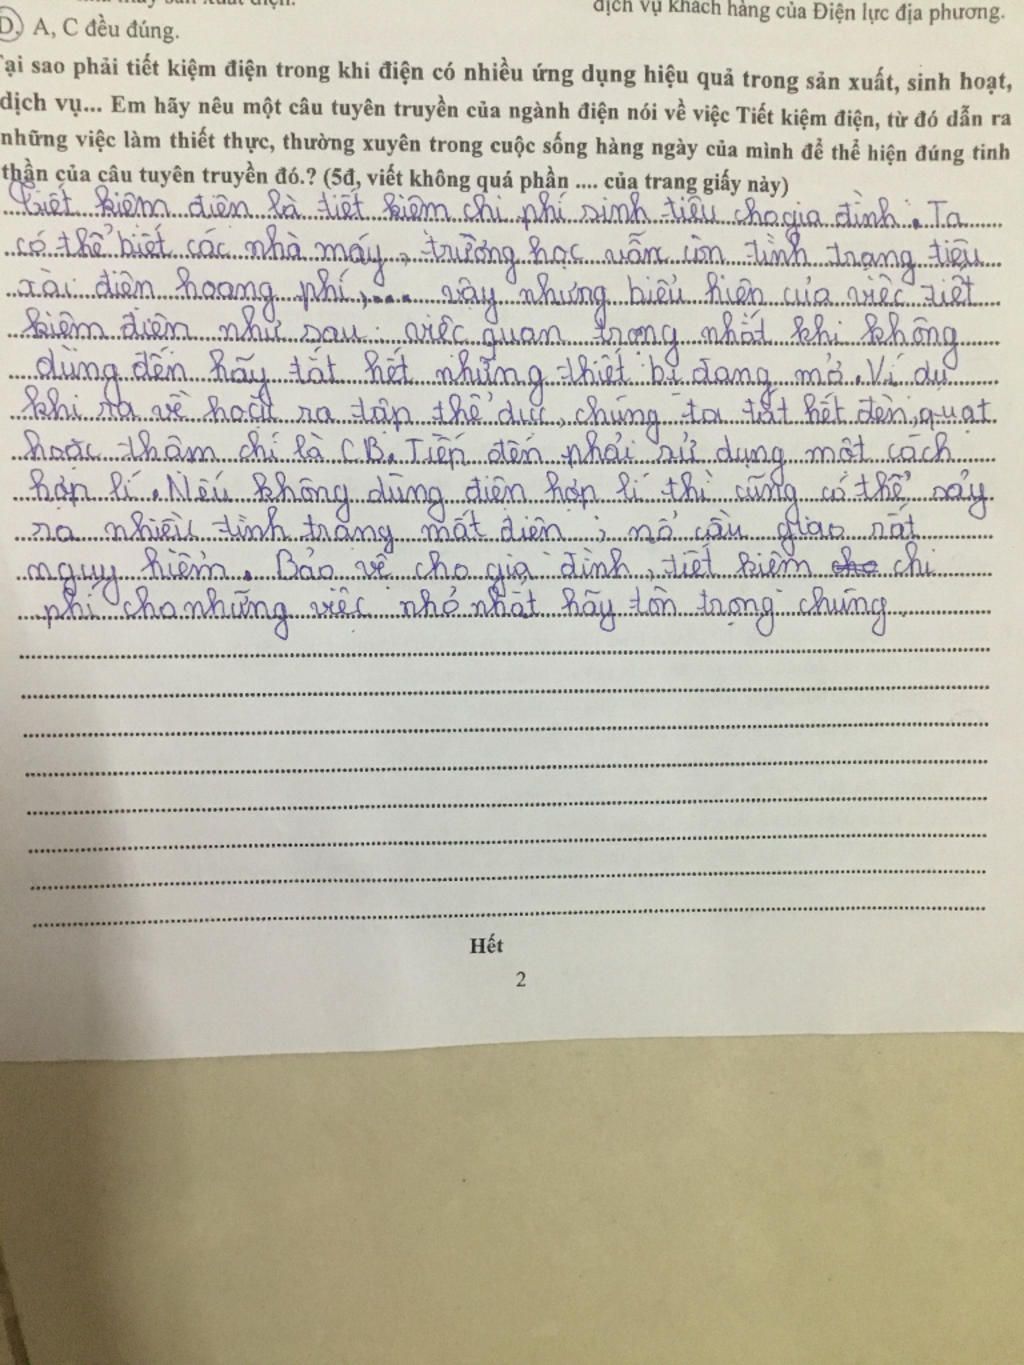 dịch vụ khách hàng của Điện lực địa phương.
D. A, C đều đúng.
Tại sao phải tiết kiệm điện trong khi điện có nhiều ứng dụng hiệu quả trong sản xuất, sinh hoạt,
dịch vụ... Em hãy nêu một câu tuyên truyền của ngành điện nói về việc Tiết kiệm điện, từ đó dẫn ra
những việc làm thiết thực, thường xuyên trong cuộc sống hàng ngày của mình để thể hiện đúng tinh
thần của câu tuyên truyền đó.? (5đ, viết không quá phần .... của trang giấy này)
Tiết kiệm điện là tiết kiệm chi phí sinh tiêu cho gia đình. Ta
có thể biết các nhà máy, trường học vẫn còn tình trạng tiêu
xài điện hoang phí,.... vậy những biểu hiện của việc tiết
kiệm điện như sau: việc quan trọng nhất khi không
dùng đến hãy tắt hết những thiết bị đang mở. Ví dụ
khi ra về hoặc ra tập thể dục, chúng ta tắt hết đèn, quạt
hoặc thậm chí là CB. Tiến đến phải sử dụng một cách
hợp lí. Nếu không dùng điện hợp lí thì cũng có thể sảy
ra nhiều tình trạng mất điện; nổ cầu giao rất
nguy hiểm. Bảo vệ cho gia đình, tiết kiệm cho chi
phí cho những việc nhỏ nhất hãy tôn trọng chúng.
Hết
2